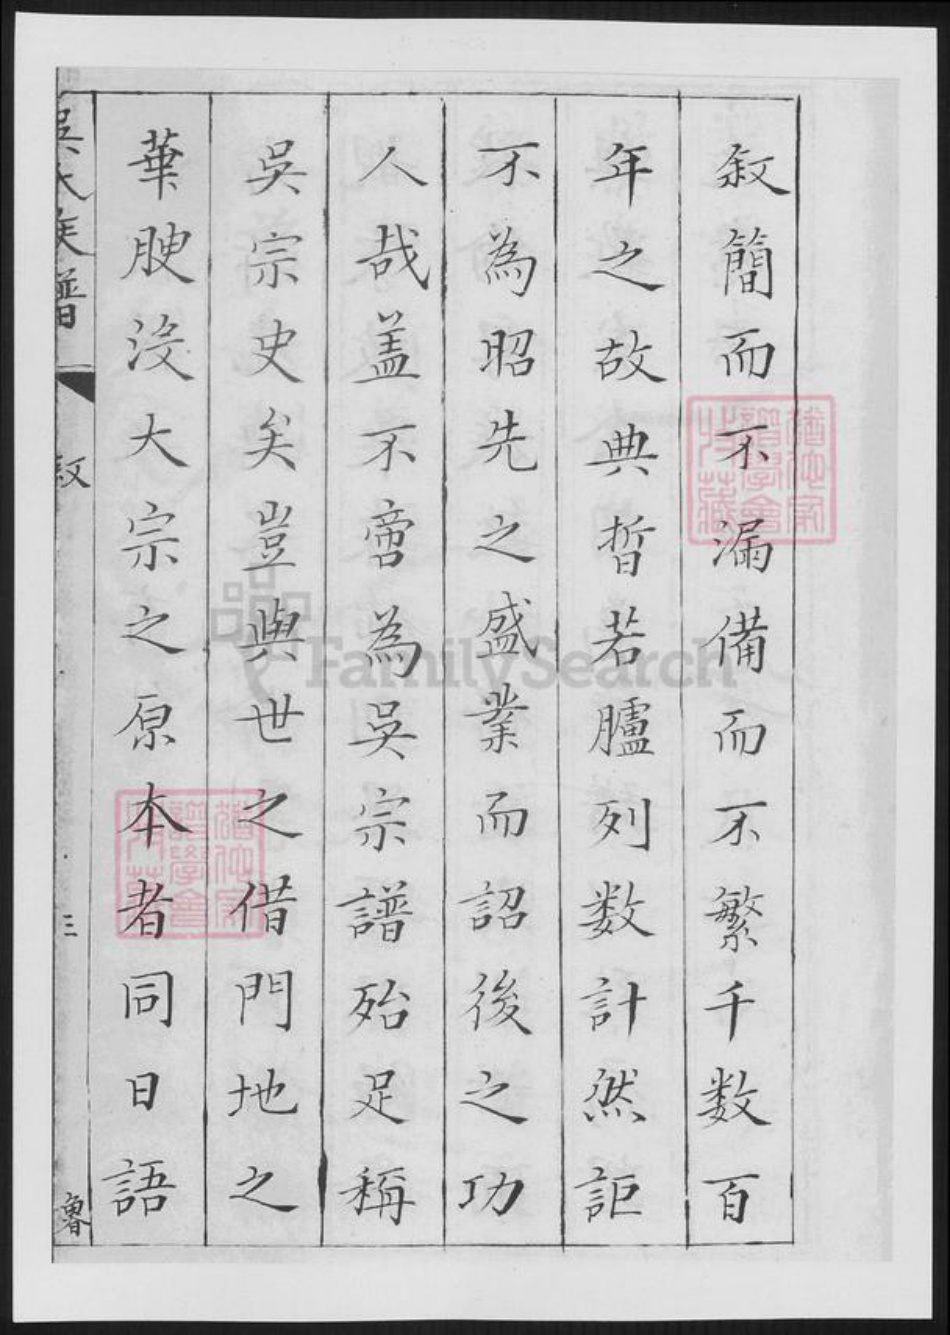 叙簡而不漏備而不繁千数百
年之故典晳若臚列数計然詎
不為昭先之盛業而詔後之功
人哉盖不啻為吳宗譜殆足稱
吳宗史矣豈與世之借門地之
華腴沒大宗之原本者同日語
吳氏族譜
叙
三
FamilySearch